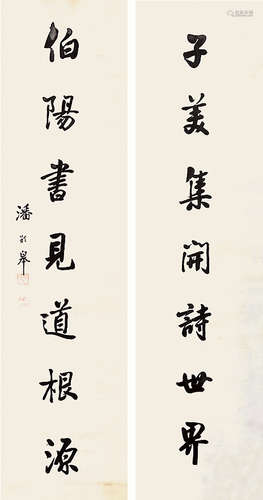 子美集開詩世界
伯陽書見道根源
潘齡皋